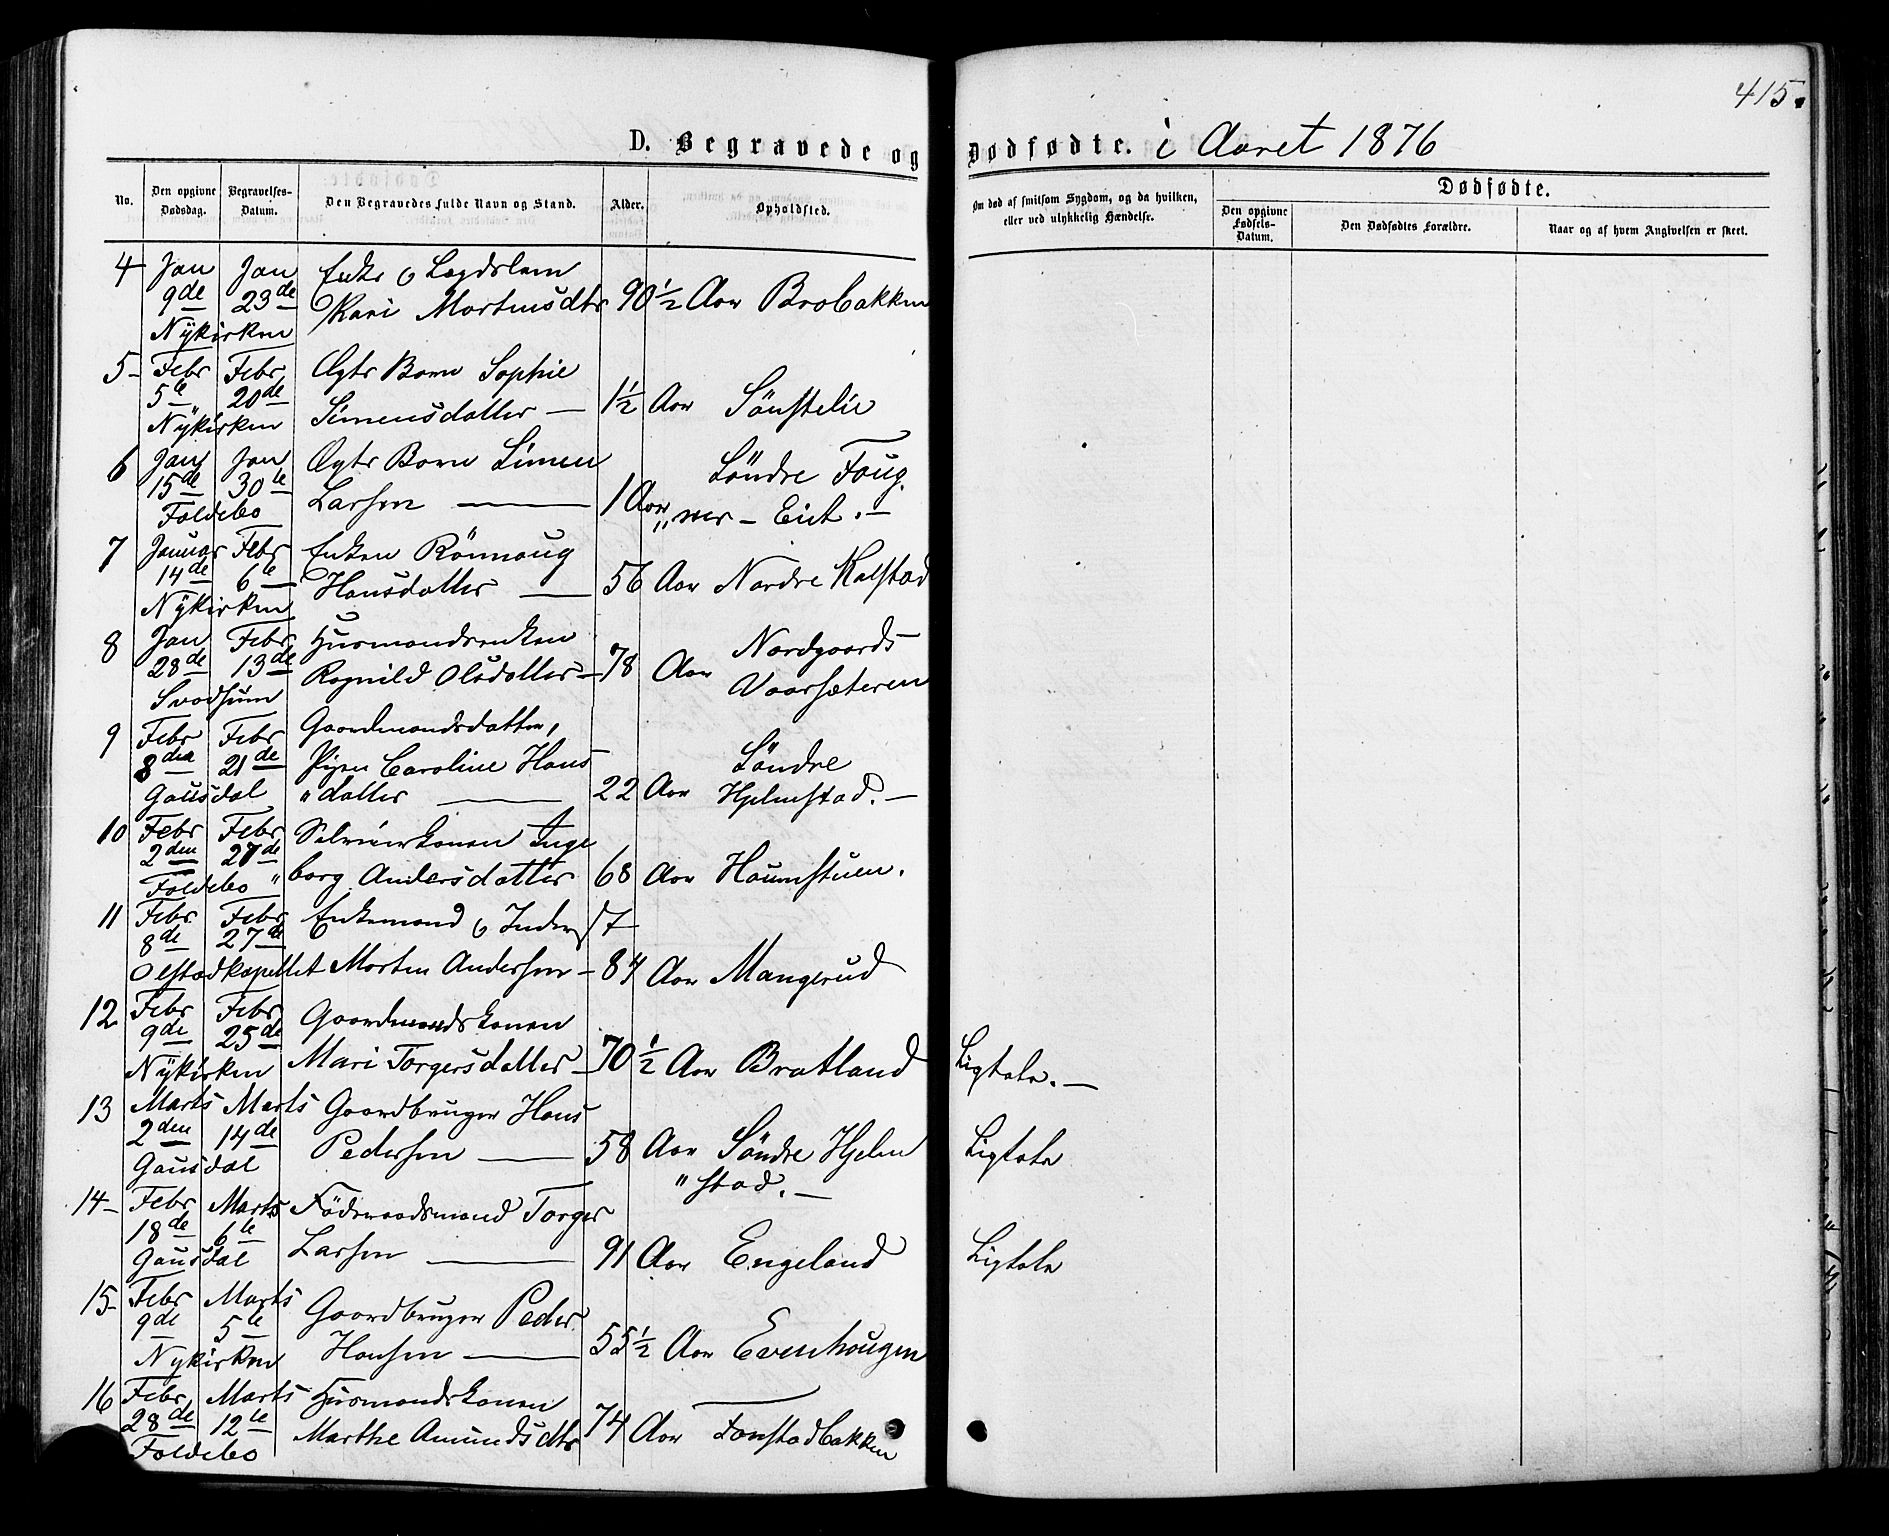 415.
D. Begravede og Dødfødte. i Aaret 1876
No. Den opgivne Dødsdag. Begravelses-Datum. Den Begravedes fulde Navn og Stand. Alder. Opholdsted. Om død af smitsom Sygdom, og da hvilken, eller ved ulykkelig Hændelse. Dødfødte.
Den opgivne Fødsels-Datum. Den Dødfødtes Forældre. Naar og af hvem Angivelsen er skeet.
4 Jan Jan Enke o Lægdslem
9de 23de Kari Mortensdtr 90½ Aar Brobakken
Nykirken
5 Febr Febr Ægte Barn Sophie
5te 20de Simensdatter — 1½ Aar Sönstelie
Nykirken
6 Jan Jan Ægte Barn Simen Söndre Foug
15de 30te Larsen — 1 Aar „ner - Eiet. —
Foldebo
7 Januar Febr Enken Rönnoug
14de 6te Hansdatter — 56 Aar Nordre Kalstad
Nykirken
8 Jan Febr Husmandsenken Nordgaards
28de 13de Ragnild Olsdatter — 78 Aar Vaarsæteren
Svadsum
9 Febr Febr Gaardmandsdatter,
8den 21de Pigen Caroline Hans Söndre
Gausdal „datter — 22 Aar Hjelmstad. —
10 Febr Febr Selveierkonen Inge
2den 27de borg Andersdatter 68 Aar Haumstuen.
Foldebo "
11 Febr Febr Enkemand o Inderst
8de 27de
Olstadkapellet Morten Andersen — 84 Aar Mangerud
12 Febr Febr Gaardmandskonen
9de 25de Mari Torgersdatter — 70½ Aar Bratland Ligtale. —
Nykirken
13 Marts Marts Gaardbruger Hans
2den 14de Pedersen — 58 Aar Söndre Hjelm Ligtale
Gausdal „stad. —
14 Febr Marts Föderaadsmand Torger
18de 6te Larsen — 91 Aar Engeland Ligtale
Gausdal
15 Febr Marts Gaardbruger Peder
9de 5te Hansen — 55½ Aar Evenhougen
Nykirken
16 Febr Marts Husmandskonen
28de 12te Marthe Amundsdtr 74 Aar Tonstadbakken
Foldebo